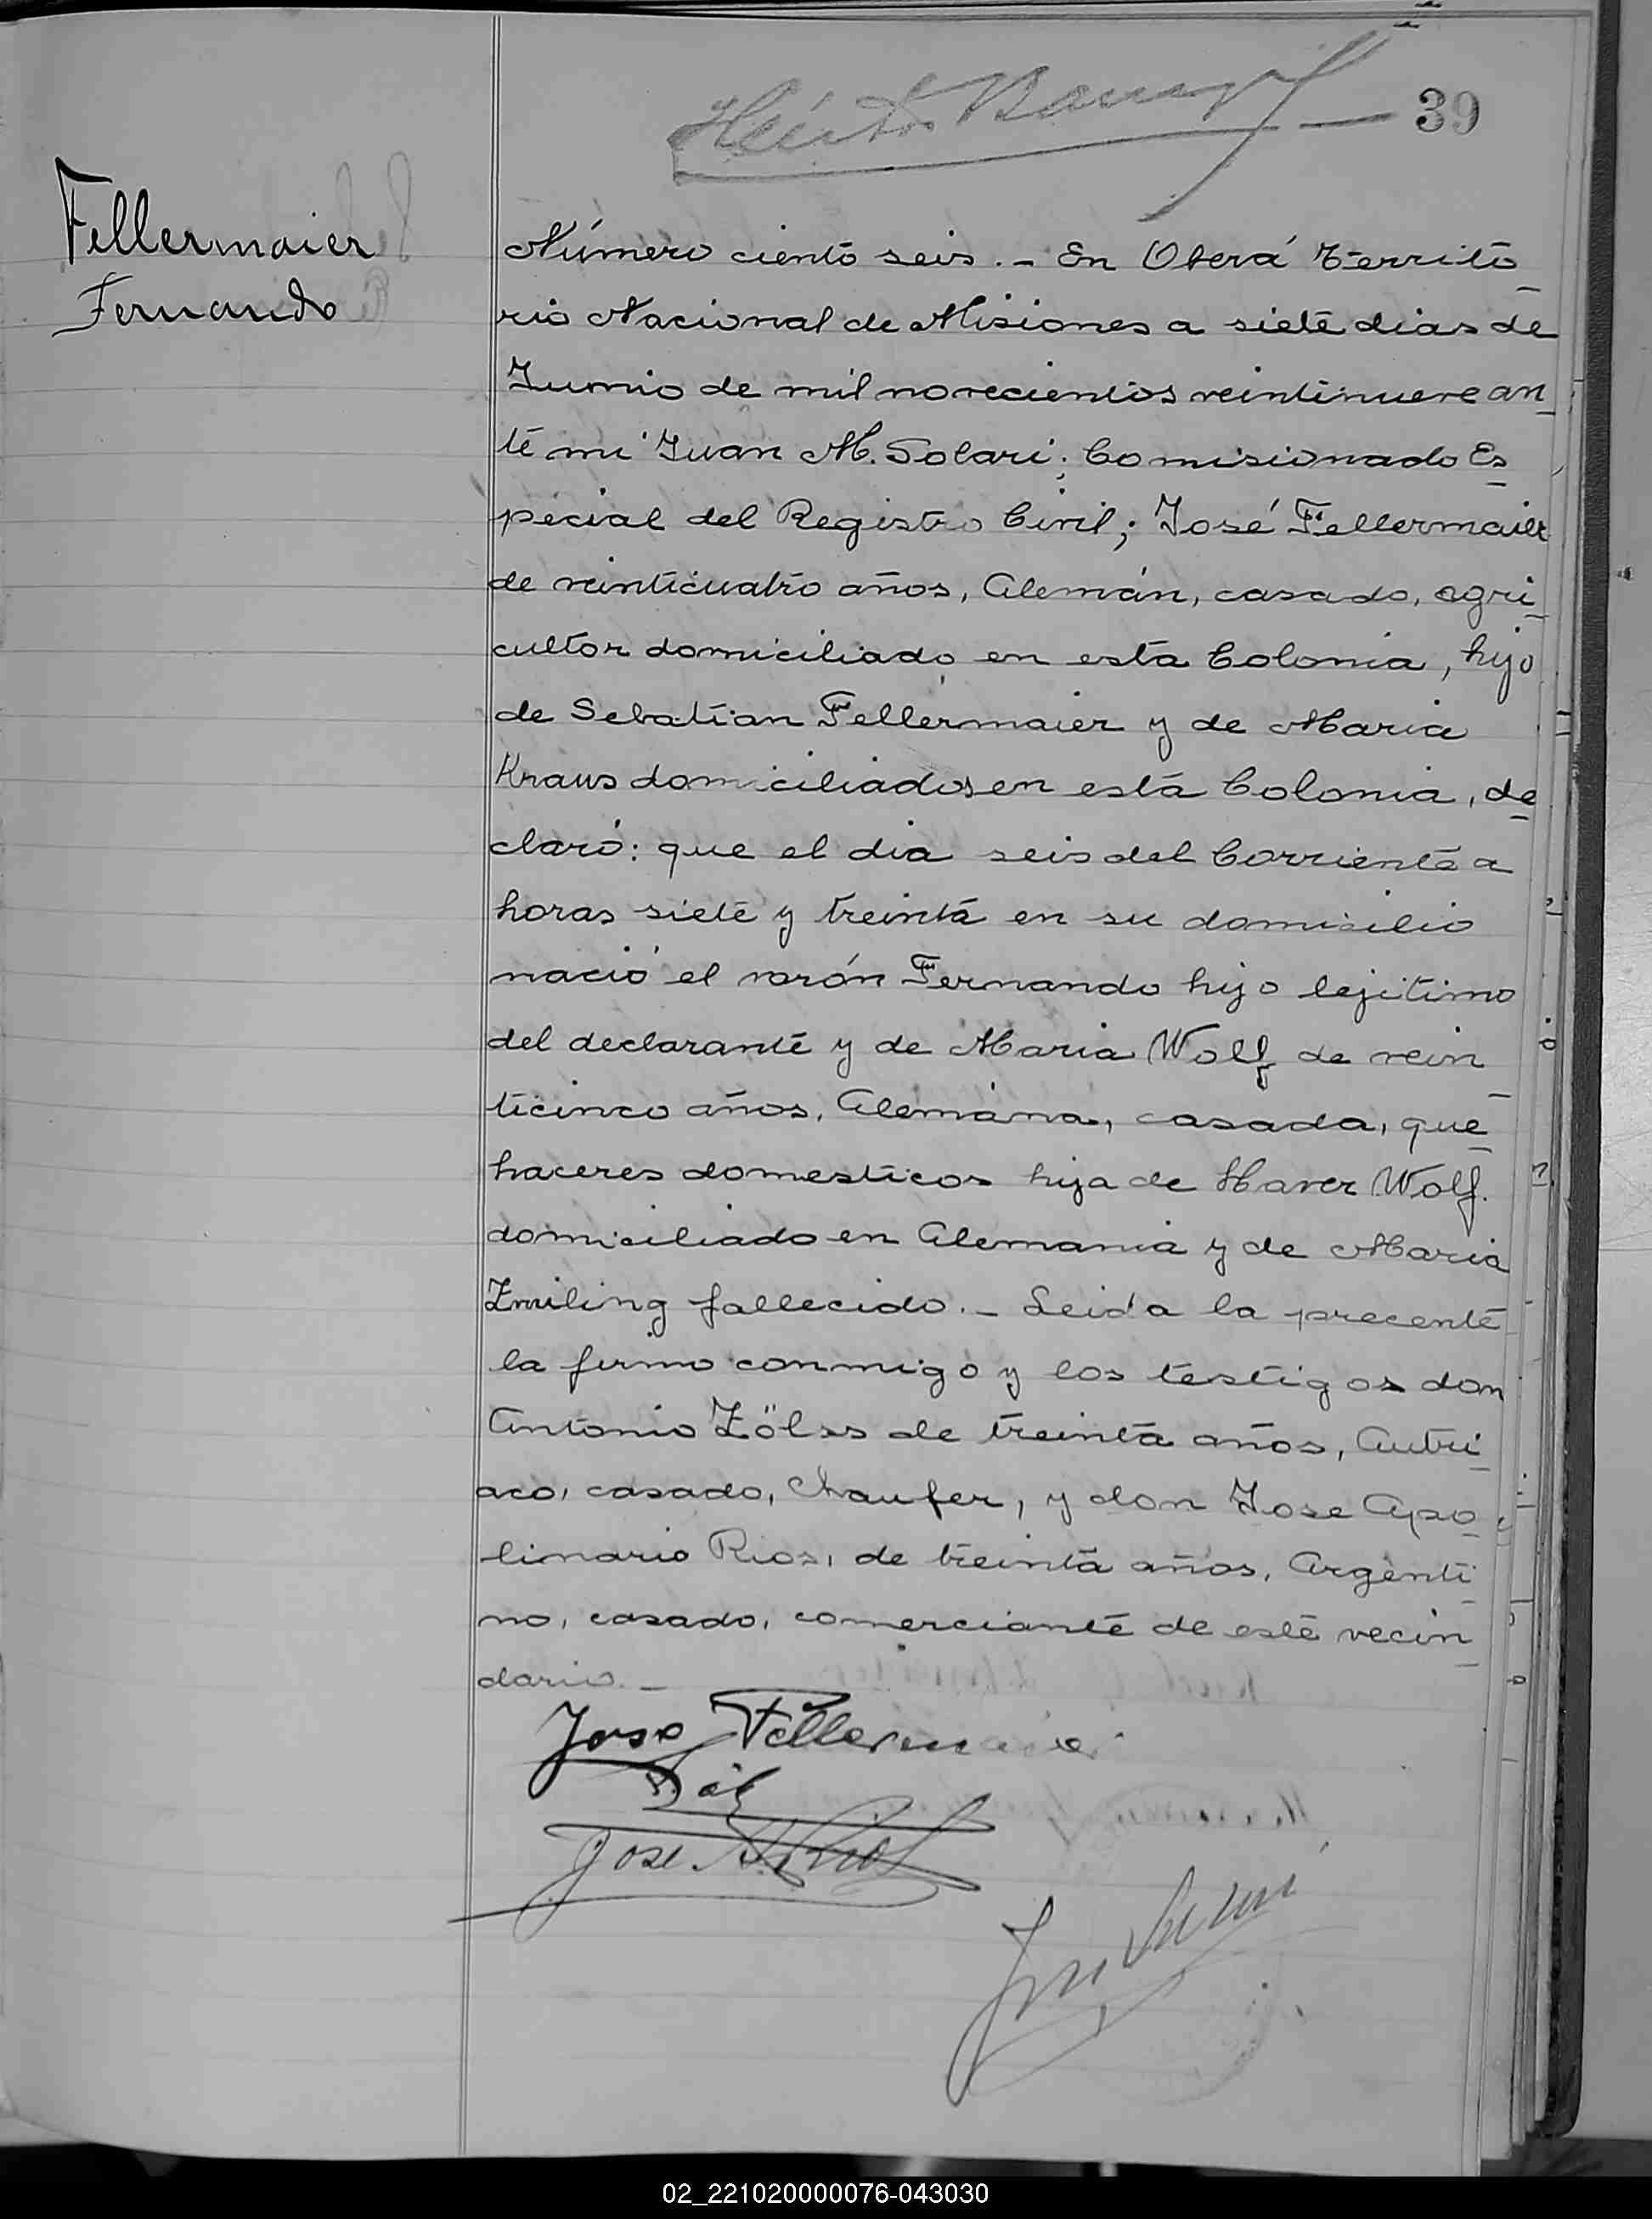 39
Fellermaier
Fernando
Número ciento seis.- En Oberá Territo
rio Nacional de Misiones a siete dias de
Junio de mil novecientos veintinueve an
te mi Juan M. Solari; Comisionado Es
pecial del Registro Civil; José Fellermaier
de veinticuatro años, Alemán, casado, agri
cultor domiciliado en esta Colonia, hijo
de Sebatian Fellermaier y de Maria
Kraus domiciliados en esta Colonia, de
claró: que el dia seis del Corriente a
horas siete y treinta en su domicilio
nació el varón Fernando hijo lejitimo
del declarante y de Maria Wolf de vein
ticinco años, Alemána, casada, que
haceres domesticos hija de Haver Wolf.
domiciliado en Alemania y de Maria
fallecido.- Leida la precente
la firmo conmigo y los testigos don
Antonio Zölss de treinta años, Autri
aco, casado, Chaufer, y don Jose Apo
linario Rios, de treinta años, Argenti
no, casado, comerciante de este vecin
dario.-
Jose Fellermaier
Jose A. Rios
02_221020000076-043030